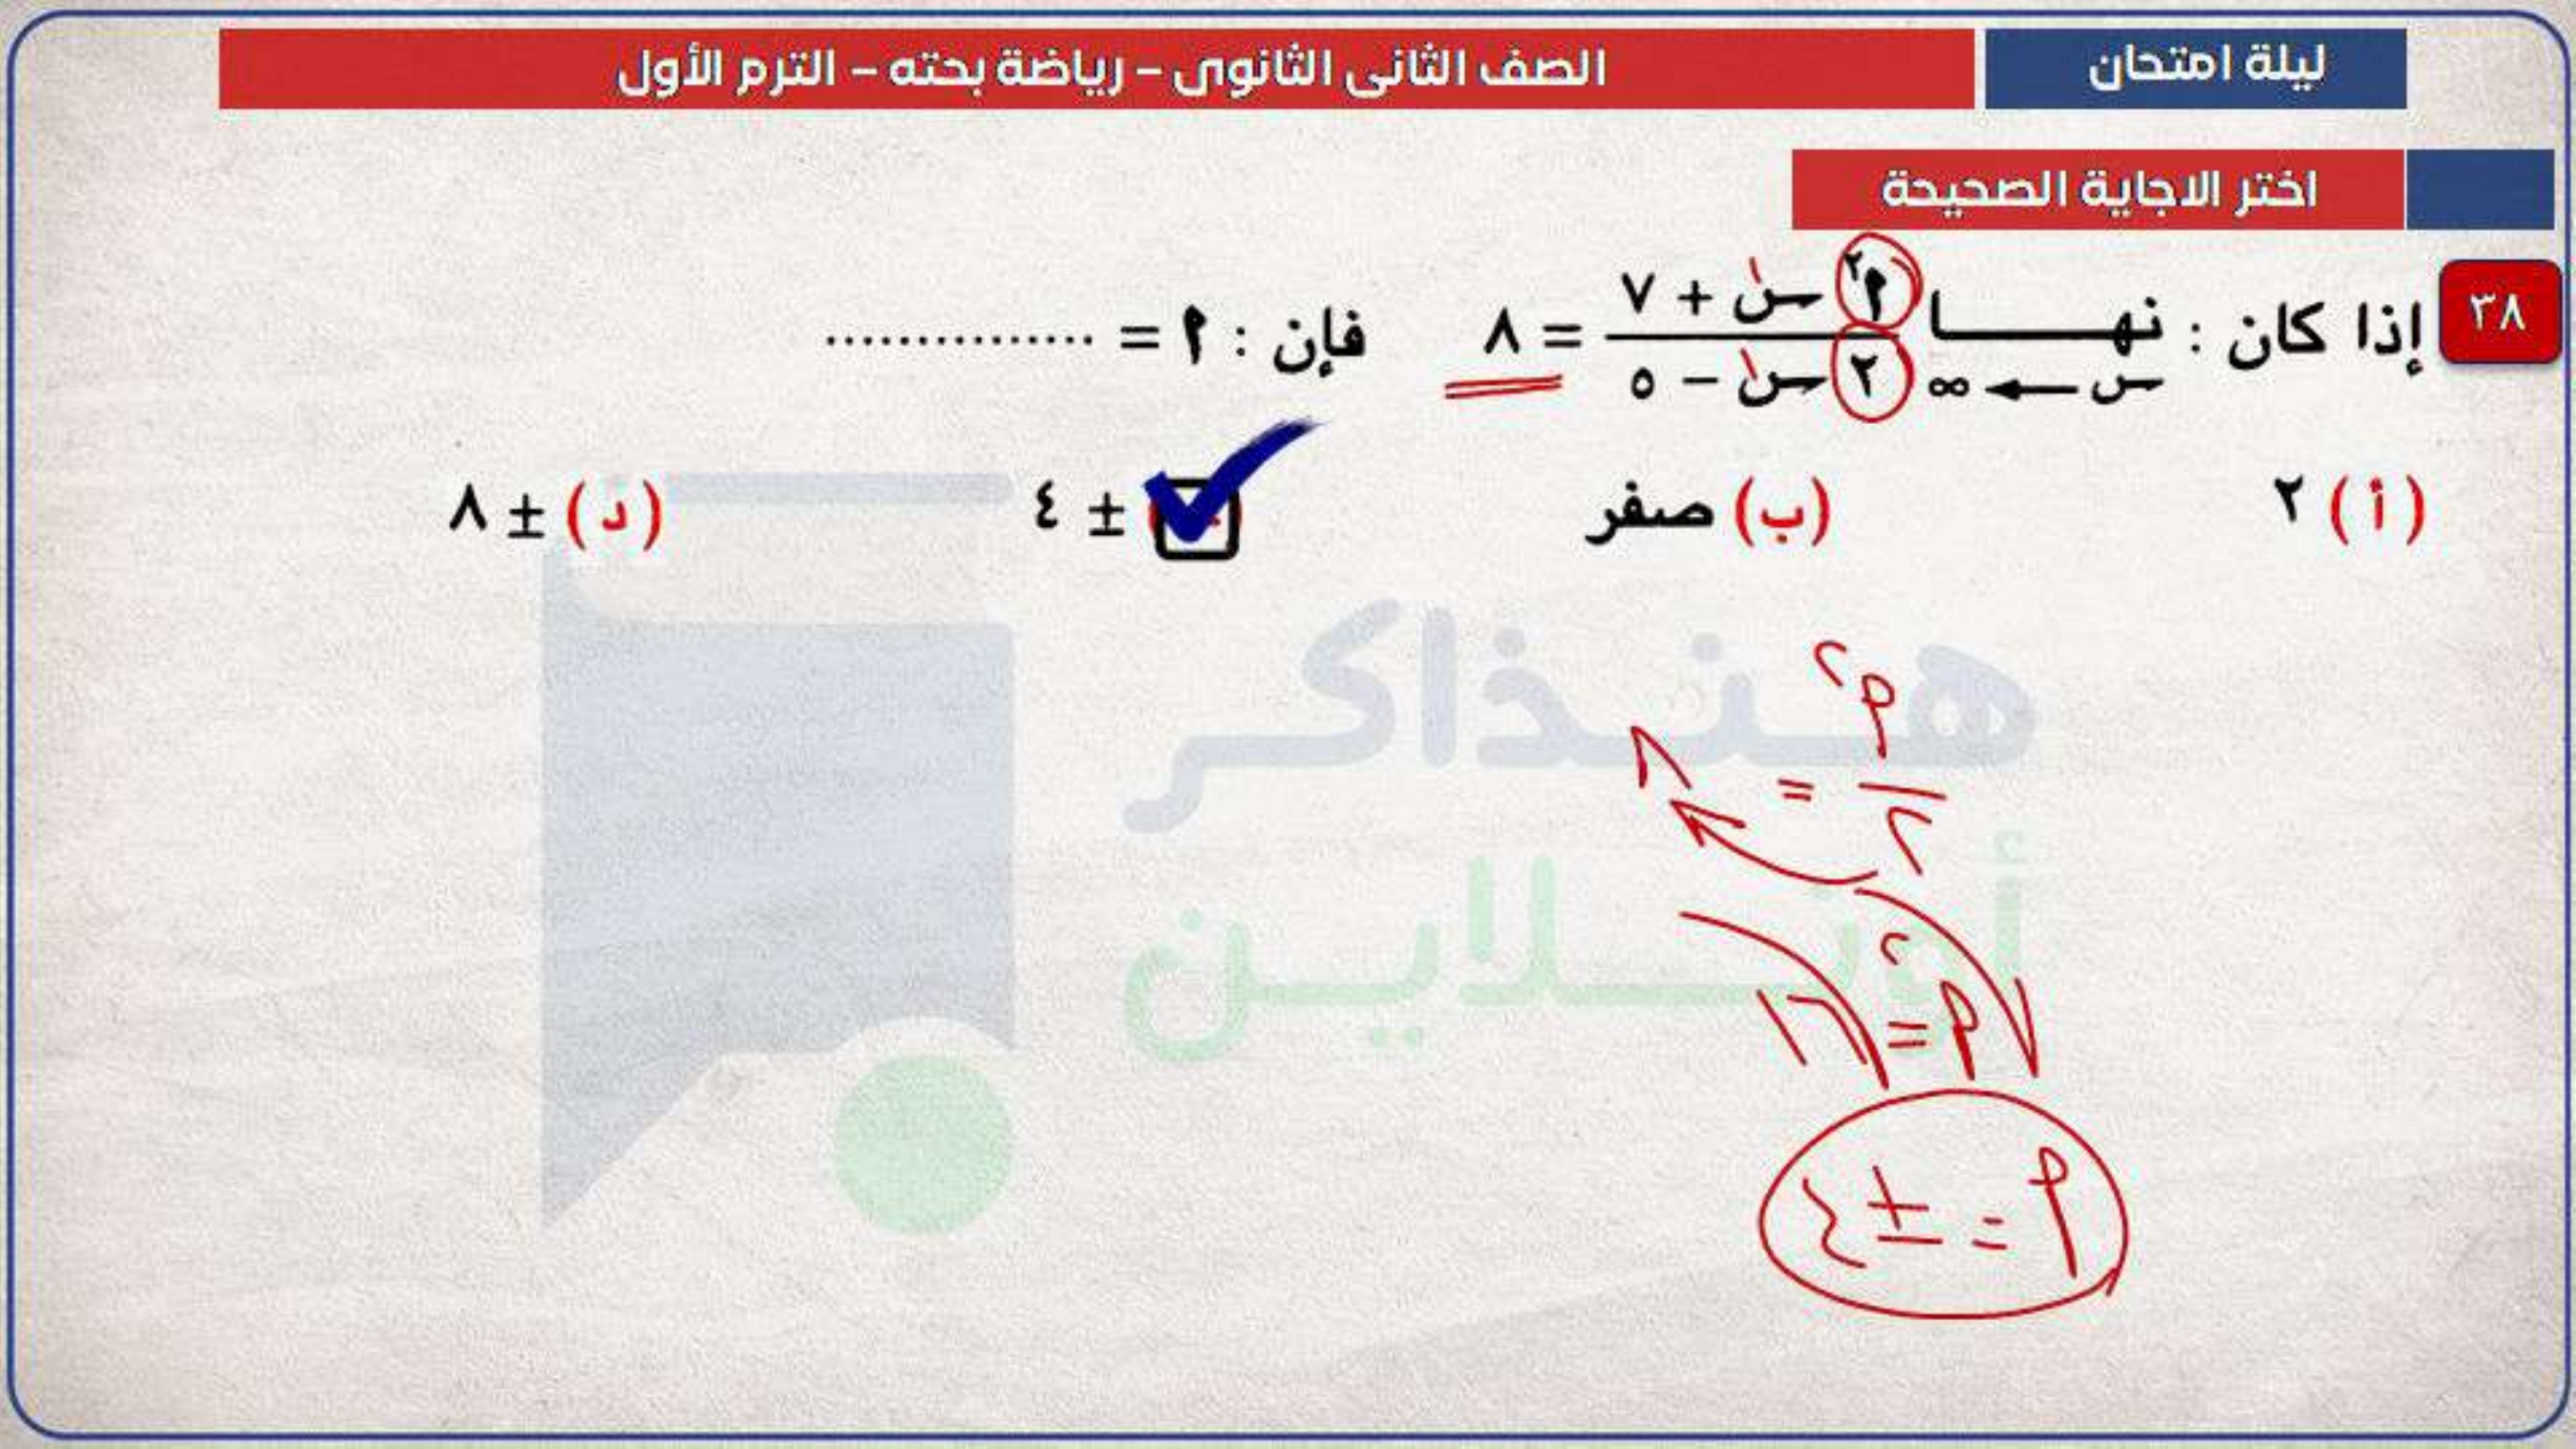 ليلة امتحان
الصف الثانى الثانوى – رياضة بحته – الترم الأول
اختر الاجاية الصحيحة
٣٨ إذا كان : نهـــا س ← ∞ (٢أ س + ٧) / (٢ س − ٥) = ٨ فإن : أ = ...............
(أ) ٢
(ب) صفر
± ٤
(د) ± ٨
أ٢ / ٢ = ٨
أ٢ = ١٦
أ = ± ٤
هنذاكر
أونلاين